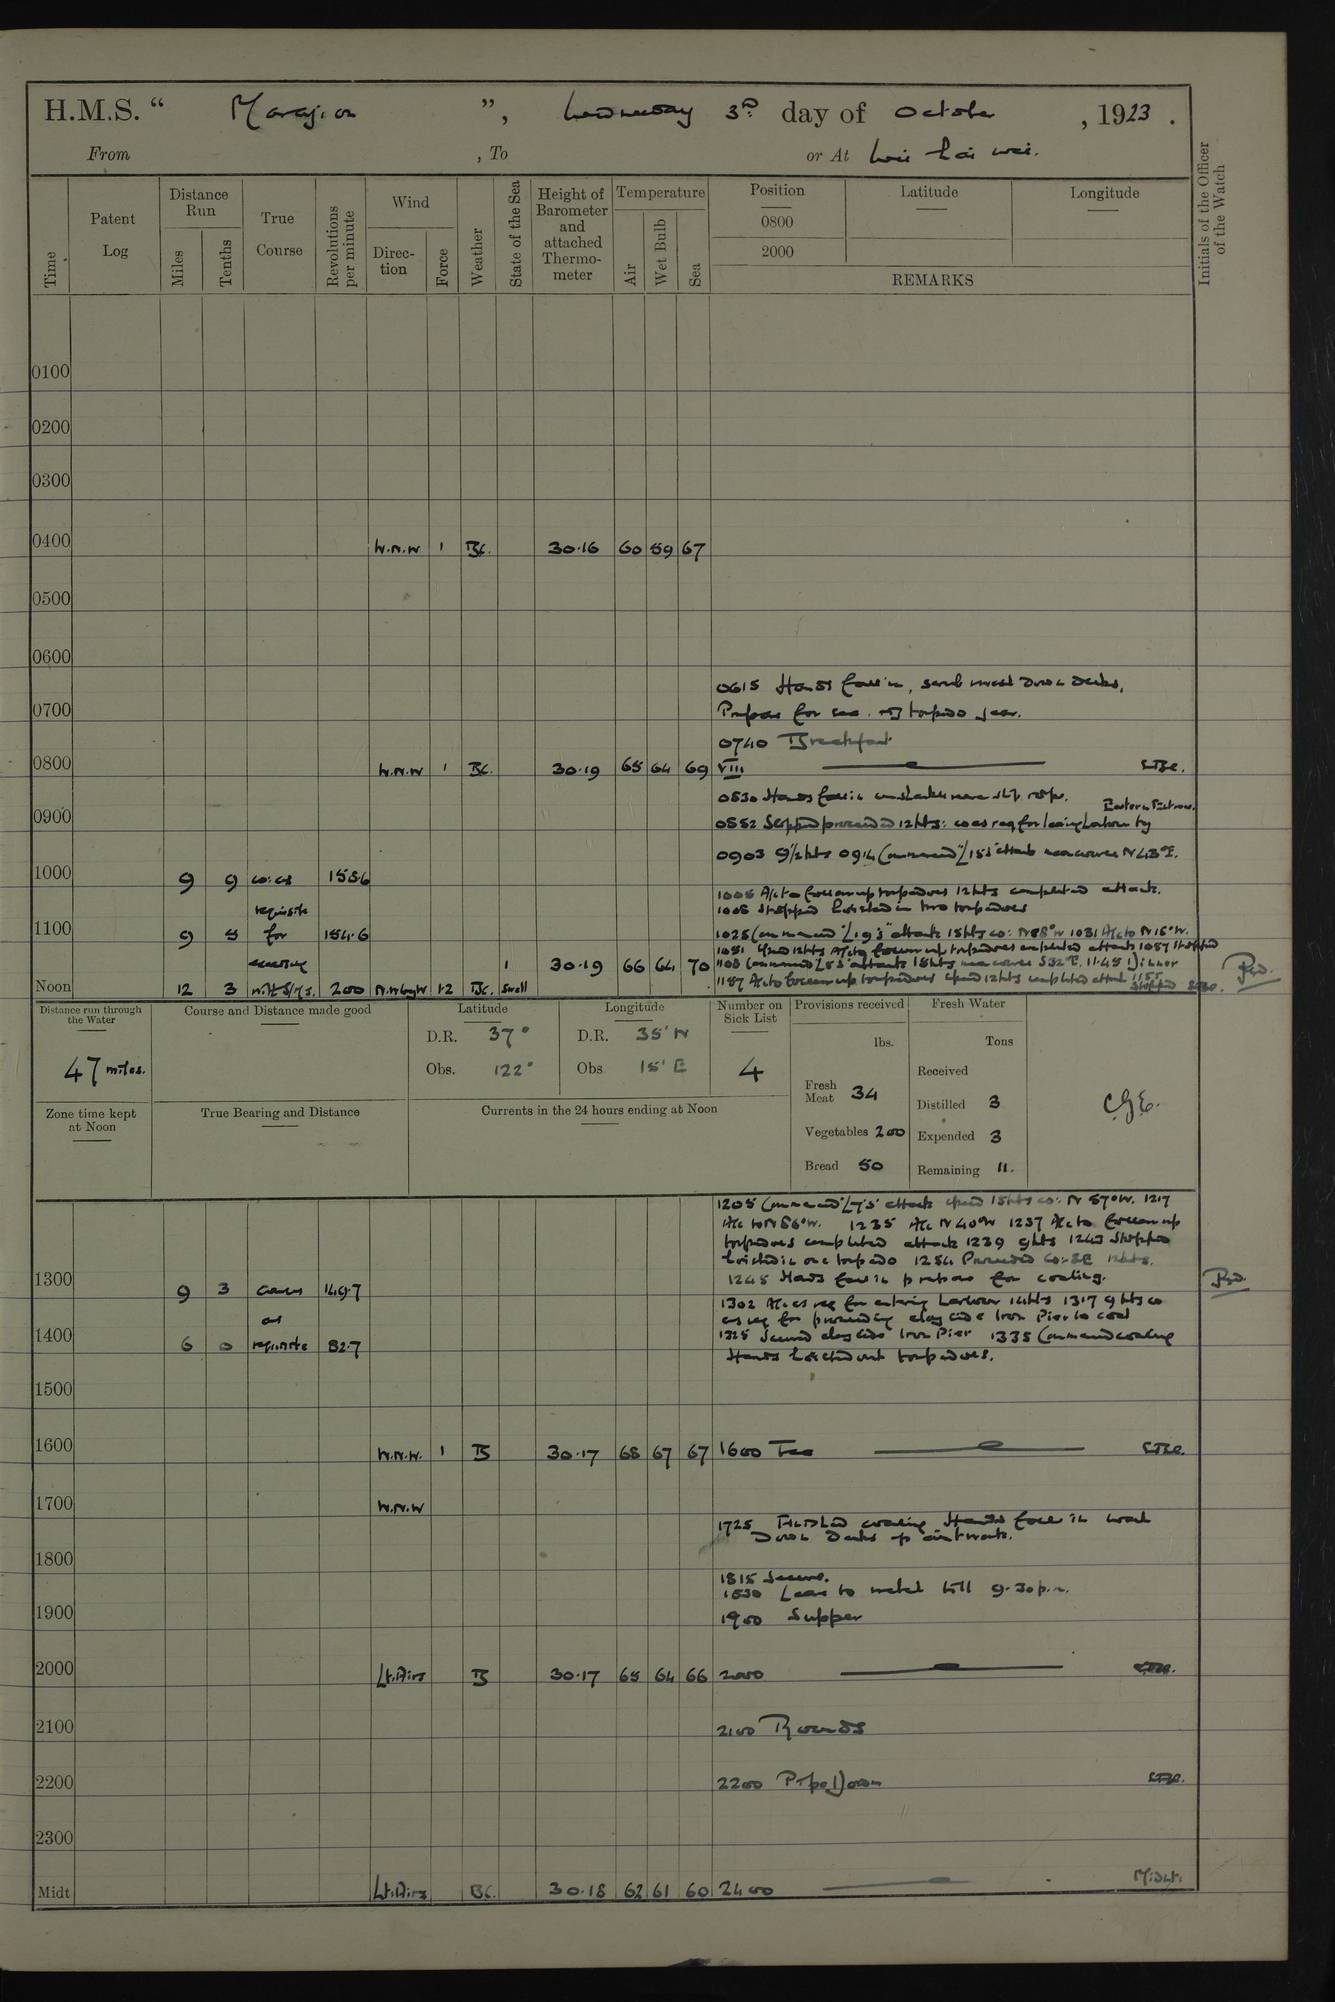 H.M.S. “ Marazion ”, Wednesday 3rd day of October , 1923 .
From , To or At Wei hai wei.
Time
Patent Log
Distance Run
Miles
Tenths
True Course
Revolutions per minute
Wind
Direction
Force
Weather
State of the Sea
Height of Barometer and attached Thermometer
Temperature
Air
Wet Bulb
Sea
Position Latitude Longitude
0800
2000
REMARKS
Initials of the Officer of the Watch
0100
0200
0300
0400 W.N.W 1 BC. 30.16 60 59 67
0500
0600
0615 Hands fall in, scrub mess Down decks,
0700 Prepare for sea. torpedo gear.
0740 Breakfast
0800 W.N.W 1 BC. 30.19 65 64 69 VIII
0830 Hands fall in
0900 0852 Slipped proceeded 12 kts: co as req for leaving harbour by Eastern Entrance.
0903 9½ kts 0914 Commenced "L15's" attack mean course N 43° E.
1000 9 9 co: as 155.6
requisite
1005 A/c to follow up torpedoes 12 kts completed attack.
1008 Stopped hoisted in two torpedoes
1100 9 5 for 154.6 1025 Commenced "L19's" attack 15 kts co: N 88° W 1031 A/c to N 15° W.
1051 Speed 12 kts A/c to follow up torpedoes completed attack 1057 Stopped
exercising 1 30.19 66 64 70 1108 Commenced L5's attack 15 kts mean course S 32° E. 11.45 Dinner
Noon 12 3 with S/Ms. 200 N.W by W 1-2 BC. Swell 1157 A/c to follow up torpedoes speed 12 kts completed attack 1155 Stopped
Distance run through the Water
Course and Distance made good
Latitude
Longitude
Number on Sick List
Provisions received
Fresh Water
D.R. 37° D.R. 35' N
lbs. Tons
47 miles.
Obs. 122° Obs 15' E 4
Received
Fresh Meat 34
Distilled 3
C.G.E.
Zone time kept at Noon
True Bearing and Distance
Currents in the 24 hours ending at Noon
Vegetables 200 Expended 3
Bread 50 Remaining 11.
1205 Commenced "L7's" attack speed 15 kts co: N 57° W. 1217
A/c to N 86° W. 1235 A/c N 40° W 1237 A/c to follow up
torpedoes completed attack 1239 9 kts 1243 Stopped
hoisted in one torpedo 1254 Proceeded Co: SE 12 kts.
1300 9 3 Courses 149.7 1245 Hands fall in prepare for coaling.
as 1302 A/c as req for entering harbour 14 kts 1317 9 kts co
as req for proceeding alongside Iron Pier to coal
1400 6 0 requisite 82.7 1325 Secured alongside Iron Pier 1335 Commenced coaling
Hands hoisted out torpedoes.
1500
1600 W.N.W. 1 B 30.17 68 67 67 1600 Tea
1700 W.N.W
1725 Finished coaling Hands fall in wash
Down Decks up
1800
1815 Secure.
1830 Leave to watch till 9.30 p.m.
1900 1900 Supper
2000 Lt. Airs B 30.17 65 64 66 2000
2100 2100 Rounds
2200 2200 Pipe Down
2300
Midt Lt. Airs BC. 30.18 62 61 60 2400 Midt.